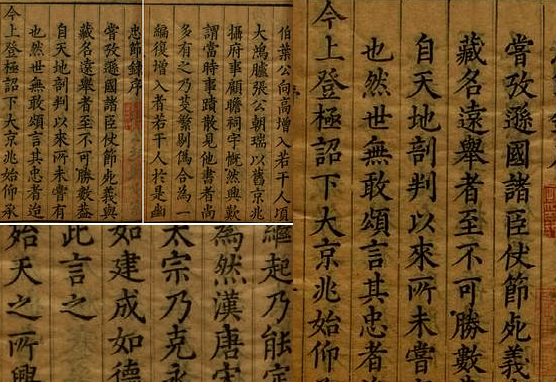 忠節錄序
嘗攷遜國諸臣仗節死義與
藏名遠舉者至不可勝數葢
自天地剖判以來所未嘗有
也然世無敢頌言其忠者迨
今上登極詔下大京兆始仰承
伯葉公向高增入若干人項
大鴻臚張公朝瑞以舊京兆
攝府事顧瞻祠宇慨然興歎
謂當時事蹟散見他書者尚
多有之乃芟繁剔偽合為一
編復增入者若干人於是幽
嘗攷遜國諸臣仗節死義
藏名遠舉者至不可勝數
自天地剖判以來所未嘗
也然世無敢頌言其忠者
今上登極詔下大京兆始仰
繼起乃能定
為然漢唐宋
太宗乃克永
如建成如德
此言之
始天之所興